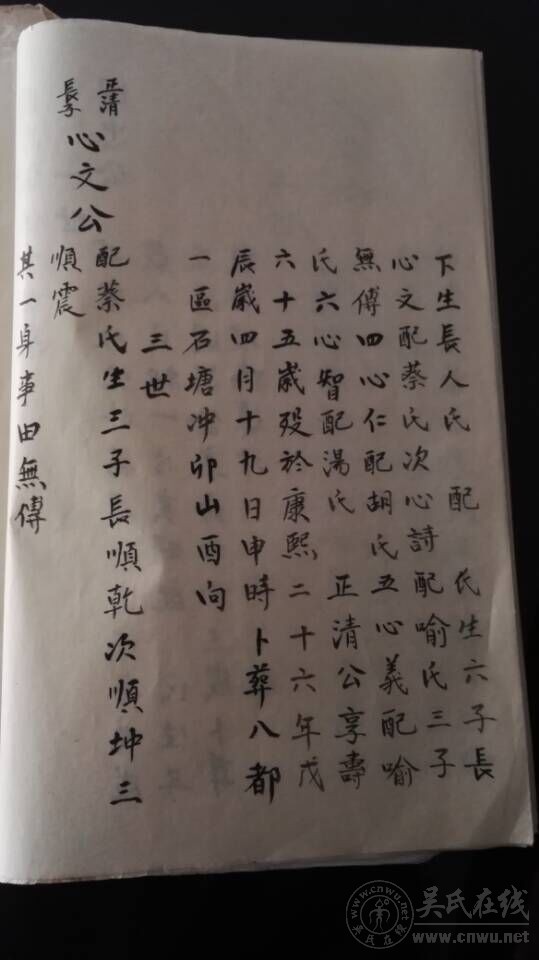 下生長人氏 配 氏生六子長
心文配蔡氏次心詩配喻氏三子
無傳四心仁配胡氏五心義配喻
氏六心智配湯氏 正清公享壽
六十五歲殁於康熙二十六年戊
辰歲四月十九日申時卜葬八都
一區石塘冲卯山酉向
三世
正清
長子
心文公
配蔡氏生三子長順乾次順坤三
順震
其一身事由無傳
吴氏在线
www.cnwu.net